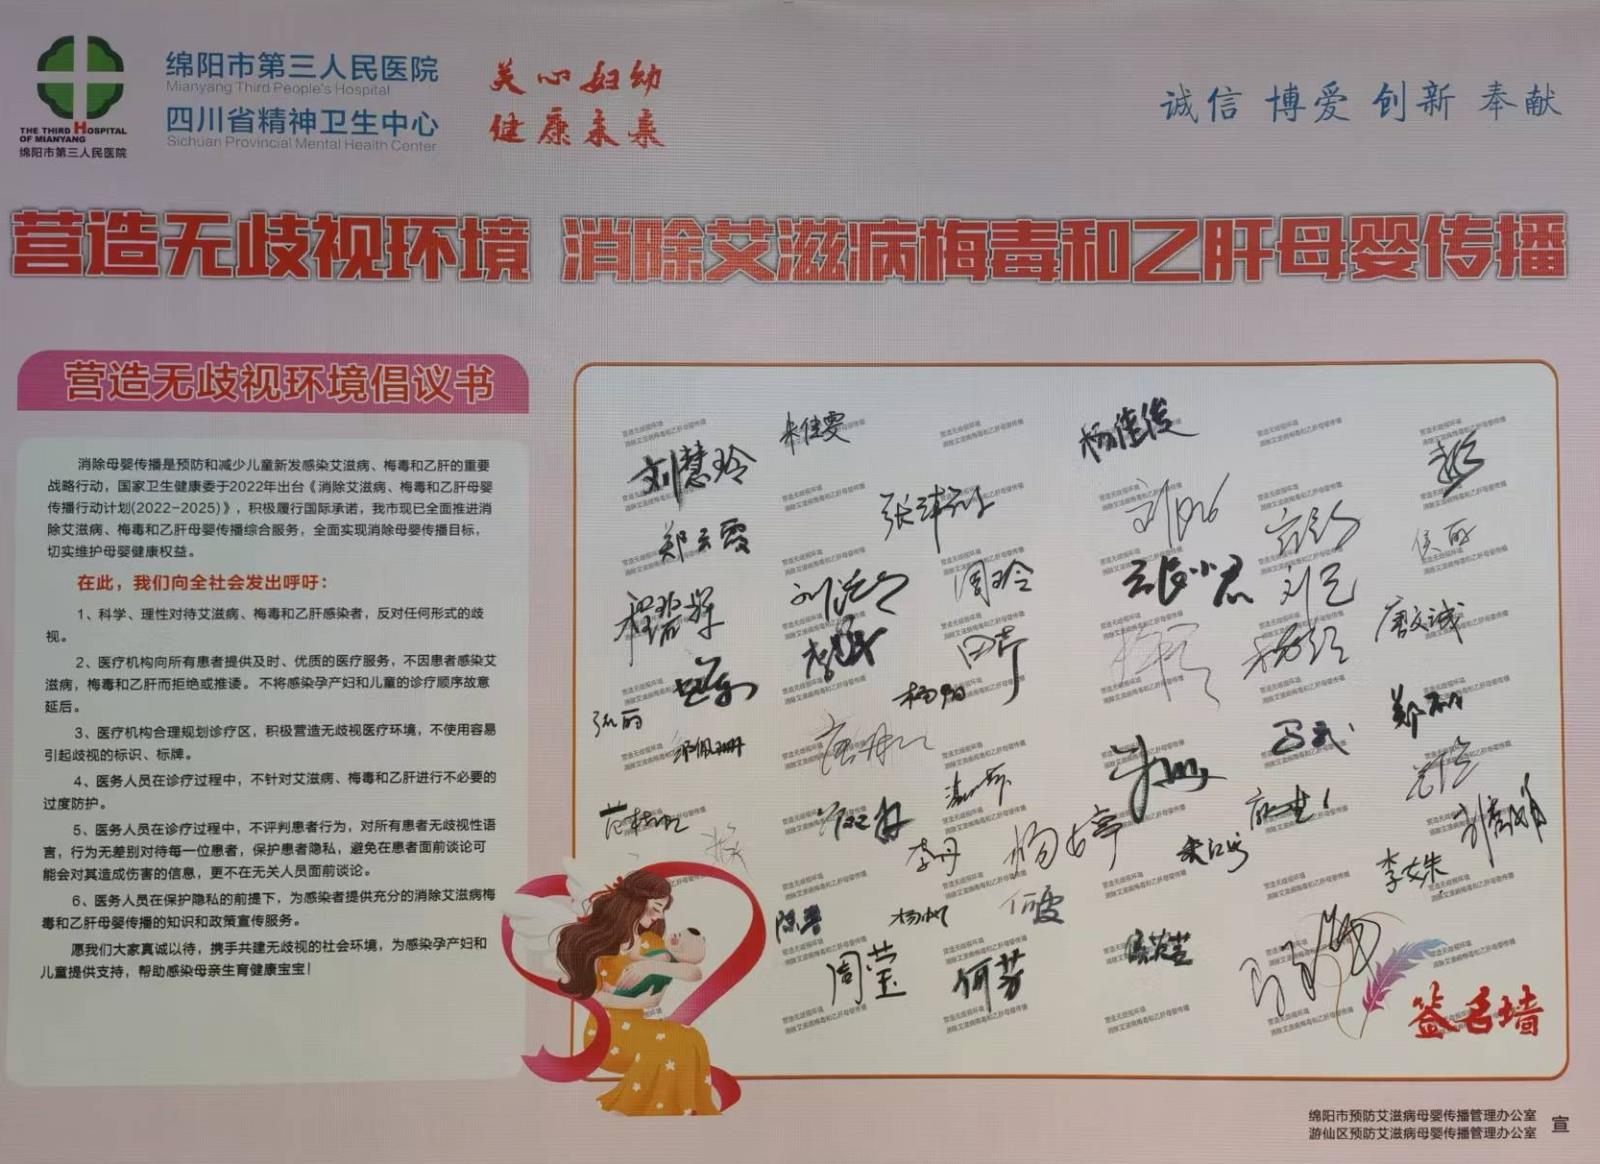 THE THIRD HOSPITAL
OF MIANYANG
绵阳市第三人民医院
绵阳市第三人民医院
Mianyang Third People's Hospital
四川省精神卫生中心
Sichuan Provincial Mental Health Center
关心妇幼
健康未来
诚信 博爱 创新 奉献
营造无歧视环境 消除艾滋病梅毒和乙肝母婴传播
营造无歧视环境倡议书
消除母婴传播是预防和减少儿童新发感染艾滋病、梅毒和乙肝的重要
战略行动，国家卫生健康委于2022年出台《消除艾滋病、梅毒和乙肝母婴
传播行动计划(2022-2025)》，积极履行国际承诺，我市现已全面推进消
除艾滋病、梅毒和乙肝母婴传播综合服务，全面实现消除母婴传播目标，
切实维护母婴健康权益。
在此，我们向全社会发出呼吁：
1、科学、理性对待艾滋病、梅毒和乙肝感染者，反对任何形式的歧
视。
2、医疗机构向所有患者提供及时、优质的医疗服务，不因患者感染艾
滋病，梅毒和乙肝而拒绝或推诿。不将感染孕产妇和儿童的诊疗顺序故意
延后。
3、医疗机构合理规划诊疗区，积极营造无歧视医疗环境，不使用容易
引起歧视的标识、标牌。
4、医务人员在诊疗过程中，不针对艾滋病、梅毒和乙肝进行不必要的
过度防护。
5、医务人员在诊疗过程中，不评判患者行为，对所有患者无歧视性语
言，行为无差别对待每一位患者，保护患者隐私，避免在患者面前谈论可
能会对其造成伤害的信息，更不在无关人员面前谈论。
6、医务人员在保护隐私的前提下，为感染者提供充分的消除艾滋病梅
毒和乙肝母婴传播的知识和政策宣传服务。
愿我们大家真诚以待，携手共建无歧视的社会环境，为感染孕产妇和
儿童提供支持，帮助感染母亲生育健康宝宝！
营造无歧视环境
消除艾滋病梅毒和乙肝母婴传播
朱佳雯
杨佳俊
刘慧玲
郑云霞
周玲
唐文诚
田芳
张丽
杨阳
李丹
杨婷
周莹
何芳
签名墙
绵阳市预防艾滋病母婴传播管理办公室
游仙区预防艾滋病母婴传播管理办公室
宣